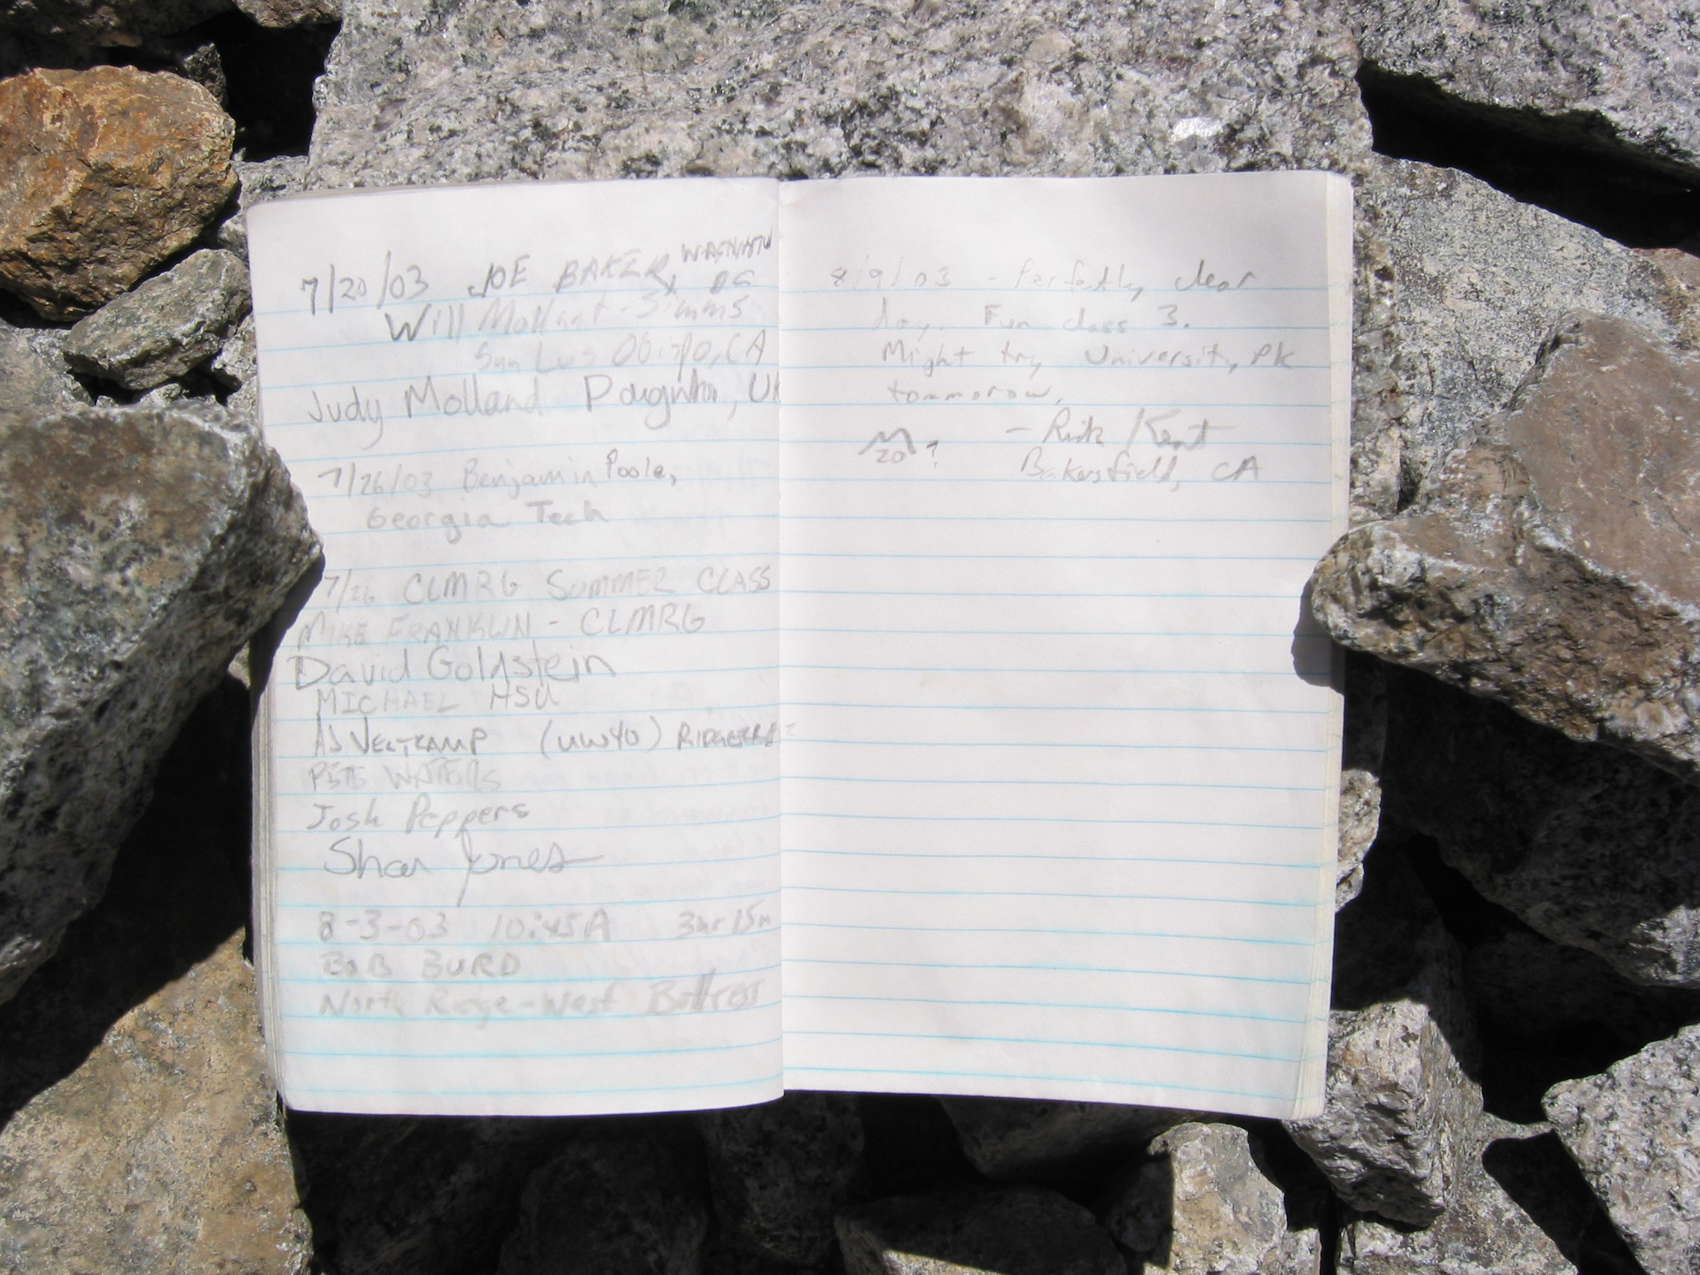 7/20/03 JOE BAKER, WASHINGTON DC
Will Molland-Simms
San Luis Obispo, CA
Judy Molland
7/26/03 Benjamin Poole,
Georgia Tech
7/26 CLMRG SUMMER CLASS
MIKE FRANKLIN - CLMRG
David Goldstein
MICHAEL HSU
AJ VELTKAMP (UW40)
PETE WATERS
Josh Peppers
Jones
8-3-03 10:45A 3hr 15m
BOB BURD
North Ridge - West Buttress
8/9/03 - Perfectly clear
day. Fun class 3.
Might try University Pk
tommorow.
- Rick Kent
20 ?
Bakersfield, CA